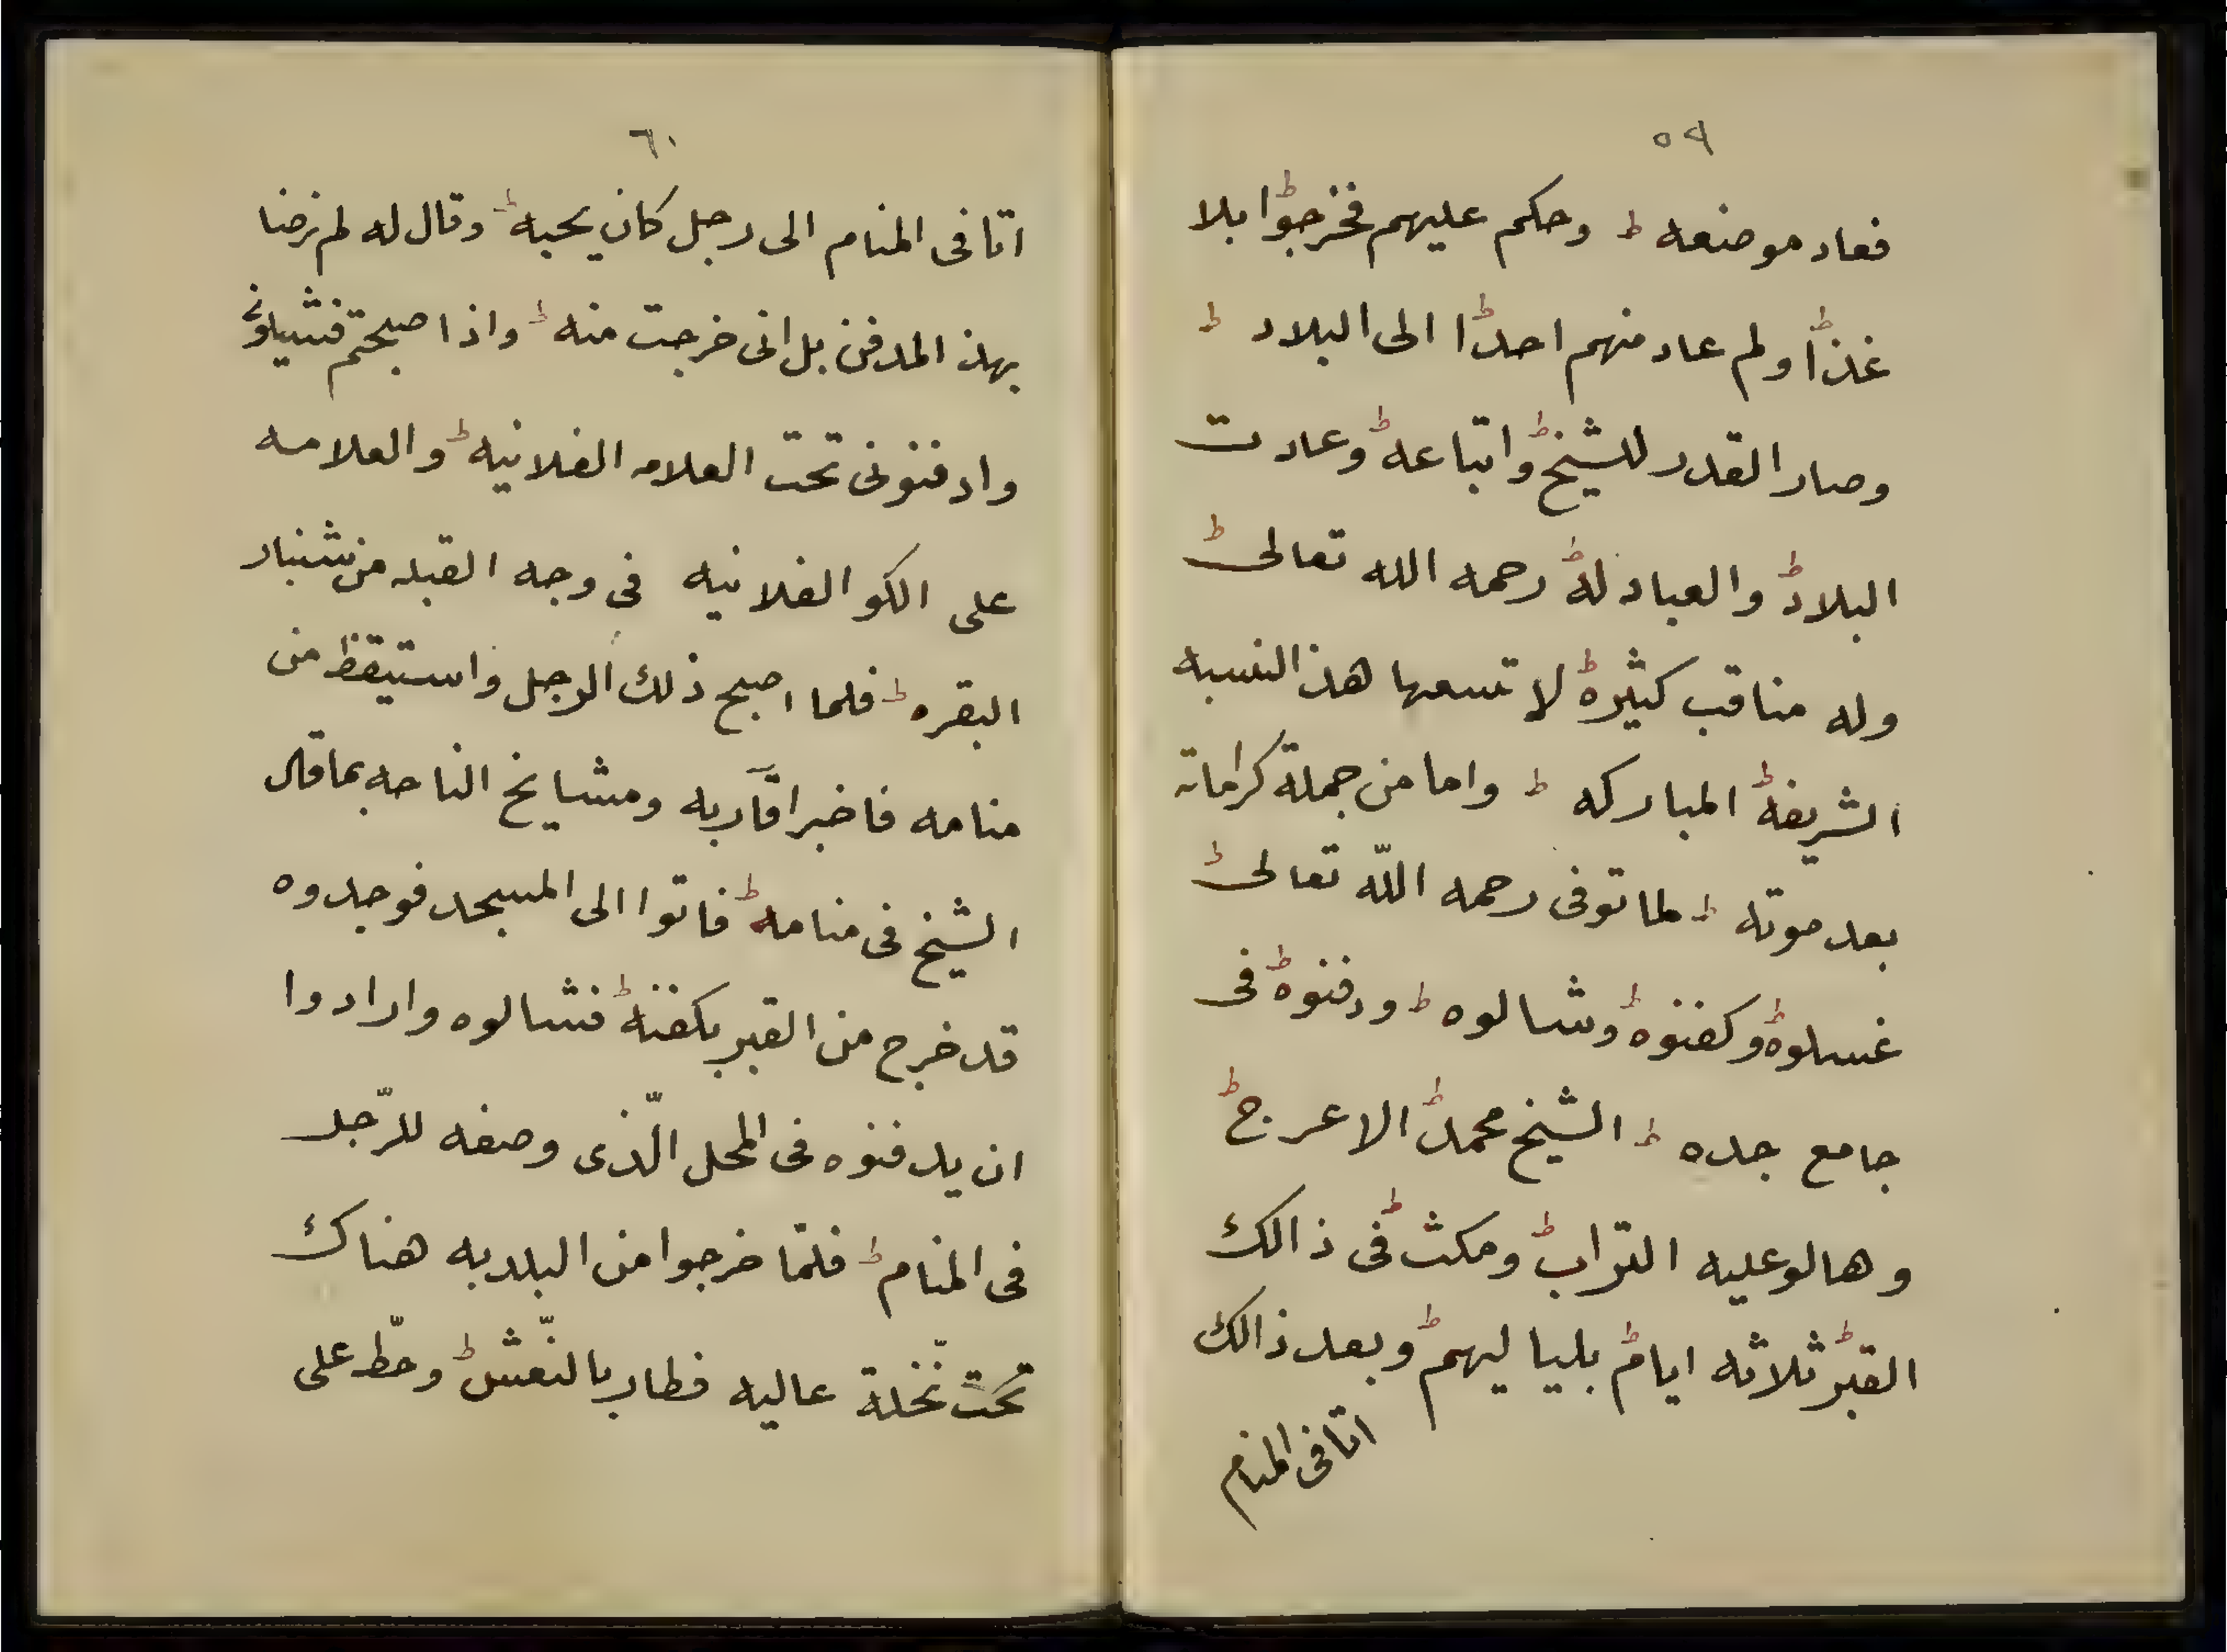 ٥٩
فعاد موضعه ط وحكم عليهم فخرجوا ط بلا
غذا ط ولم عاد منهم احدا ط الى البلاد ط
وصار القدر للشيخ ط واتباعه ط وعادت
البلاد ط والعباد له ط رحمه الله تعالى ط
وله مناقب كثيره ط لا تسعها هذ النسبه
الشريفه ط المباركه ط واما من جملة كراماته
بعد موته ط لما توفى رحمه اللّه تعالى ط
غسلوه ط وكفنوه ط وشالوه ط ودفنوه ط فى
جامع جده ط الشيخ محمد ط الاعرج ط
وهالو عليه التراب ط ومكث ط فى ذالك
القبر ط ثلاثه ايام ط بلياليهم ط وبعد ذالك
اتا فى المنام
٦٠
اتا فى المنام الى رجل كان يحبه ط وقال له لم نرضا
بهذ المدفن بل انى خرجت منه ط واذا اصبحتم فشيلونى
وادفنونى تحت العلامه الفلانيه ط والعلامه
على الكو الفلانيه فى وجه القبله من شنبار
البقره ط فلما اصبح ذلك الرجل واستيقظ من
منامه فاخبر اقآربه ومشايخ الناحه بما قال
الشيخ فى منامه ط فاتوا الى المسجد فوجدوه
قد خرج من القبر بكفنه ط فشالوه وارادوا
ان يدفنوه فى المحل الّذى وصفه للرّجل
فى المنام ط فلمّا خرجوا من البلد به هناك
تحت نّخلة عاليه فطار بالنّعش ط وحطّ على